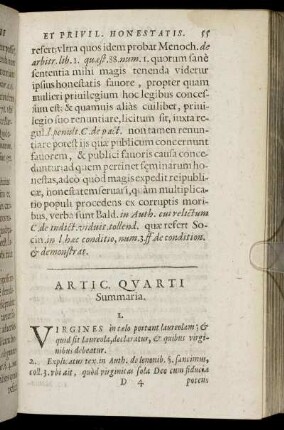 ET PRIVIL. HONESTATIS. 55
refert, vltra quos idem probat Menoch. de
arbitr. lib. 1. quæst. 88. num. 1. quorum sanè
sententia mihi magis tenenda videtur
ipsius honestatis fauore, propter quam
mulieri priuilegium hoc legibus conces-
sum est; & quamuis aliàs cuilibet, priui-
legio suo renuntiare, licitum sit, iuxta re-
gul. l. penult. C. de pact. non tamen renun-
tiare potest iis quæ publicum concernunt
fauorem, & publici fauoris causa conce-
duntur: ad quem pertinet feminarum ho-
nestas, adeo quod magis expedit reipubli-
cæ, honestatem seruari, quàm multiplica-
tio populi procedens ex corruptis mori-
bus, verba sunt Bald. in Auth. cui relictum
C. de indict. viduit. tollend. quæ refert So-
cin. in l. hac conditio, num. 3. ff. de condition.
& demonstrat.
ARTIC. QVARTI
Summaria.
1.
VIRGINES in cælo portant laureolam; &
quid sit laureola, declaratur, & quibus virgi-
nibus debeatur.
2. Explicatus tex. in Auth. de lenonib. §. sancimus,
coll. 3. vbi ait, quòd virginitas sola Deo cum fiducia
D 4 potens